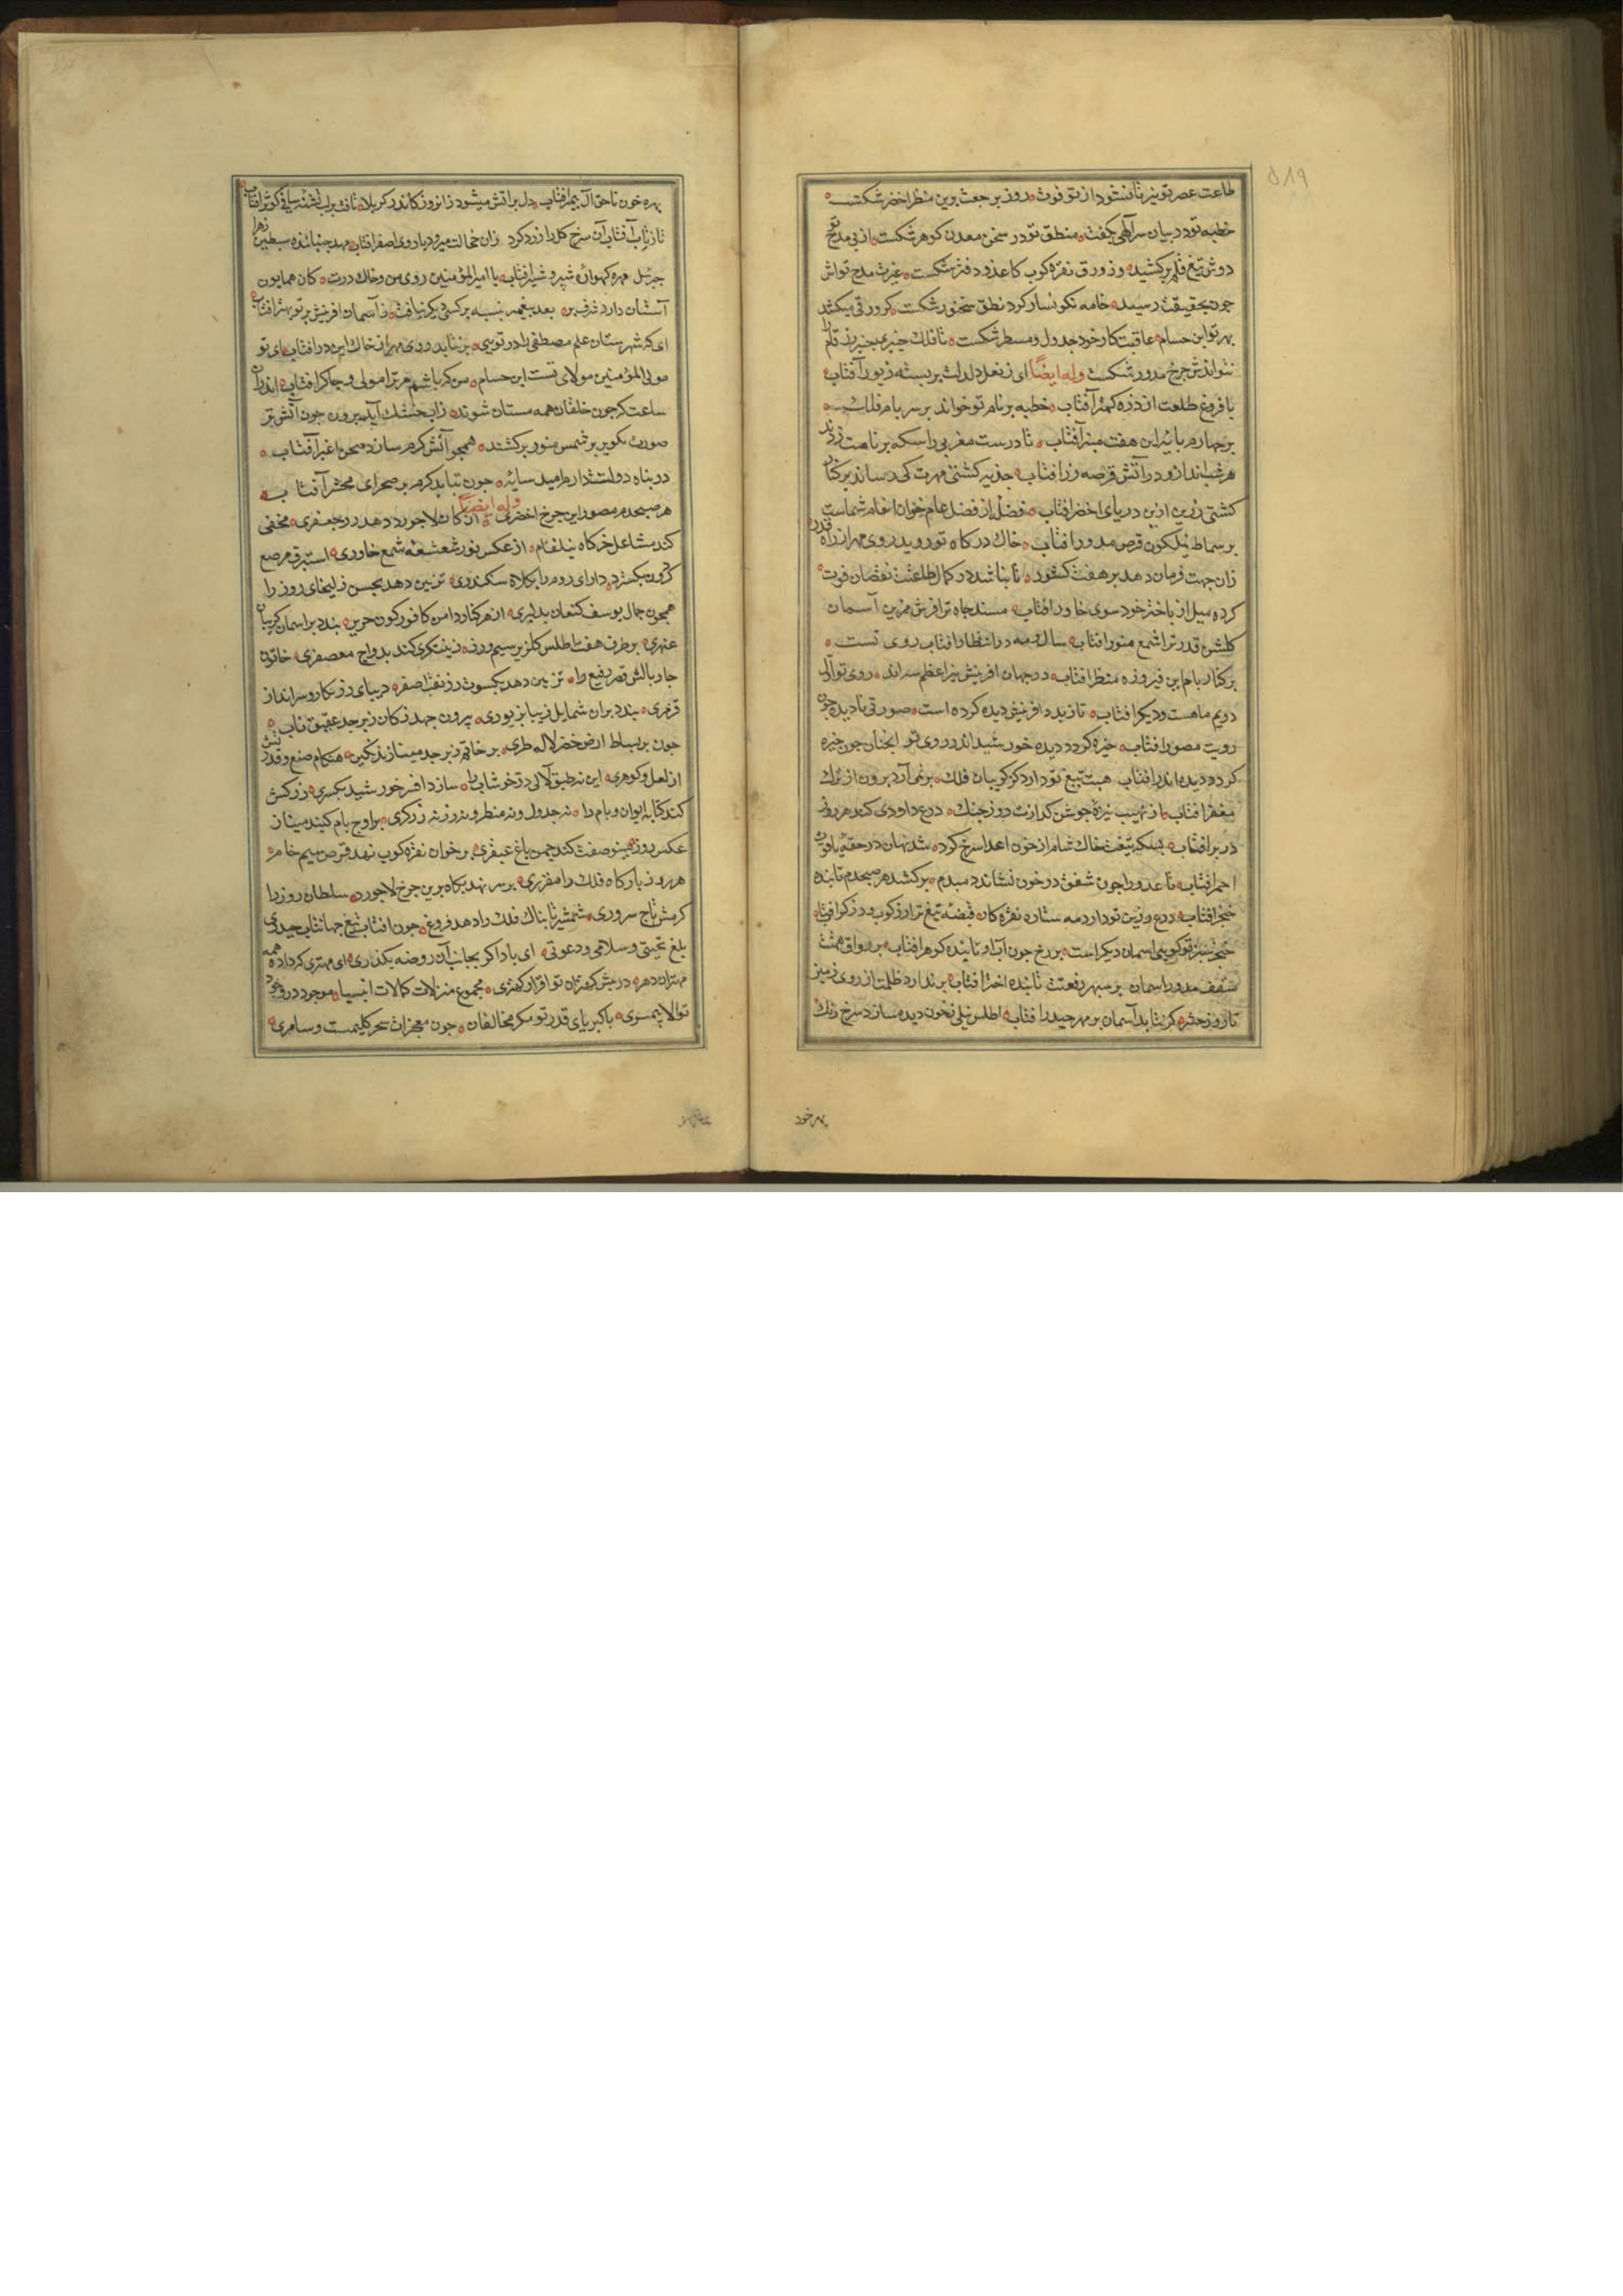 طاعت عصر تو نیز تا نشود از تو فوت روز برجعت برین منظر اخضر شکست
خطبه تو در بیان سر آلهی بگفت منطق تو در سخن معدن کوهر شکست از پی مدح تو
دوش تیغ قلم برکشید وز ورق نقره کوب کاغذ و دفتر شکست غیرت مدح تواش
چون بحقیقت رسید خامه نکونسار کرد نطق سخنور شکست کر ورقی میکشد
بهر تو ابن حسام عاقبت کار خود جدول و مسطر شکست تا فلک چنبری چنبر زر قام را
نتواندش چرخ مدور شکست وله ایضاً ای ز نعل دلدلت بر بسته زیور آفتاب
با فروغ طلعت از ذره کمتر آفتاب خطبه بر نام تو خواند بر سر بام فلک
بر چهارم پایه این هفت منبر آفتاب تا درست مغربی را سکه بر نامت زند
هر شب اندازد در آتش قرصه زر افتاب جذبه کشتی مهرت کی رساند بر کنار
کشتی زرین ازین دریای اخضر افتاب فضله از فضل عام خوان انعام شماست
بر سماط نیلکون قرص مدور افتاب خاک درکاه تو روبد روی مهر از راه قدر
زان جهت فرمان دهد بر هفت کشور تا نباشد در کمال طاعتت نقصان فوت
کرده میل از باختر خود سوی خاور افتاب مسند جاه ترا فرش مزین آسمان
کلشن قدر ترا شمع منور افتاب سال و مه در انتظار افتاب روی تست
بر کنار بام این فیروزه منظر افتاب در جهان افرینش نیر اعظم سه اند روی تو اول
دویم ماهست و دیکر افتاب تا زبد و افرینش دیده کرده است صورتی نادیده چون
رویت مصور افتاب خیره کردد دیده خورشید اندر روی تو انچنان چون خیره
کردد دیده اندر افتاب هیبت تیغ تو دارد کز کریبان فلک بر نمی آرد برون از ترک
مغفر افتاب از نهیب نیزه جوشن کدازت روز جنک درع داودی کند هر روز
در بر افتاب بسکه تیغت خاک شام از خون اعدا سرخ کرد شد نهان در حقه یاقوت
احمر افتاب تا عدو را چون شفق در خون نشاند دمبدم بر کشد هر صبحدم تابنده
خنجر افتاب درع زرین تو دارد مه ستاره نقره کان قبضه تیغ ترا زرکوب و زرکر افتاب
خنجر سبز تو کویی اسمان دیکر است بر رخ چون آب او تابنده کوهر افتاب بر رواق همتت
سقف مدور اسمان بر سپهر رفعتت تابنده اختر افتاب بر ندارد ظلمت از روی زمین
تا روز حشر کر نتابد آسمان بر مهر حیدر افتاب اطلس نیلی بخون دیده سازد سرخ رنک
بهر خود
بهره خون تا حق آل پیمبر افتاب دل بر اتش میشود زانروز کاندر کربلا تافت بر لب تشنه ساقی کوثر افتاب
تا ز تاب آفتاب آن سرخ کل را زرد کرد زان خجالت میرود با روی اصفر افتاب مهد جنباننده سبطین زهرا
جبرئیل مهره کهواره شپیر و شپر افتاب یا امیر المؤمنین روی من و خاک درت کان همایون
آستان دارد شرف بر بعد پیغمبر بنسبه بر کسی دیکر نیافت ز آسمان افرینش بر تو بهتر افتاب
ای که شهرستان علم مصطفی را در تویی بر نتابد روی مهر از خاک این در افتاب ای تو
مولی المؤمنین مولای تست ابن حسام من که باشم مر ترا مولی و چاکر افتاب اندران
ساعت که چون خلقان همه مستان شوند زاب خشک آید برون چون آتش تر
صورت تکویر بر شمس منور برکشند همچو آتش کرم سازد صحن اغبر آفتاب
در پناه دولتت دارم امید سایه چون بتابد کرم بر صحرای محشر آفتاب
وله ایضاً
هر صبحدم مصور این چرخ اخضری از کان لاجورد دهد زر جعفری مخفی
کند مشاعل خرکاه نیلفام از عکس نور شعشعه شمع خاوری استبرق مرصع
کردون بکسترد دارای روم را بکلاه سکندری تزیین دهد بحسن زلیخای روز را
همچون جمال یوسف کنعان بدلبری از هر کنار دامن کافور کون حریر بندد بر اسمان کریبان
عنبری بر طرف هفت اطلس کلریز سیم ورق زینتکری کند بدواج معصفری خاتون
چار بالش قصر رفیع را تزیین دهد بکسوت زربفت اصفر دیبای زرنکار و سرانداز
قرمزی بندد بران شمایل زیبا بزیوری بیرون جهد ز کان زبرجد عقیق ناب
چون بر بساط ارض خضر لاله طری بر خاتم زبرجد مینا زند نکین هنکام صنع و قدرتش
از لعل و کوهری این نه طبق لآلی در خوشاب را سازد افسر خورشید بکسری زرکش
کند کتابه ایوان و بام را نه جدول و نه منظر و نه زر نه زرکری بر اوج بام کنبد مینا ز
عکس روز مینو صفت کند چمن باغ عبقری بر خوان نقره کوب نهد قرص سیم خام
هر روز بارکاه فلک را مقرری بر سر نهد بکاه برین چرخ لاجورد سلطان روز را
کرمش تاج سروری شمشیر تابناک فلک را دهد فروغ چون افتاب تیغ جهانتاب حیدری
بلغ تحیتی و سلامی و دعوتی ای باد اکر بجانب آن روضه بکذری ای مهتری که داده همه
مهتران دهر در پیش کهتران تو اقرار کهتری مجموع منزلات کمالات انبیا موجود در وجود
تو الا پیمبری با کبریای قدر تو مکر مخالفان چون معجزات سحر کلیمست و سامری